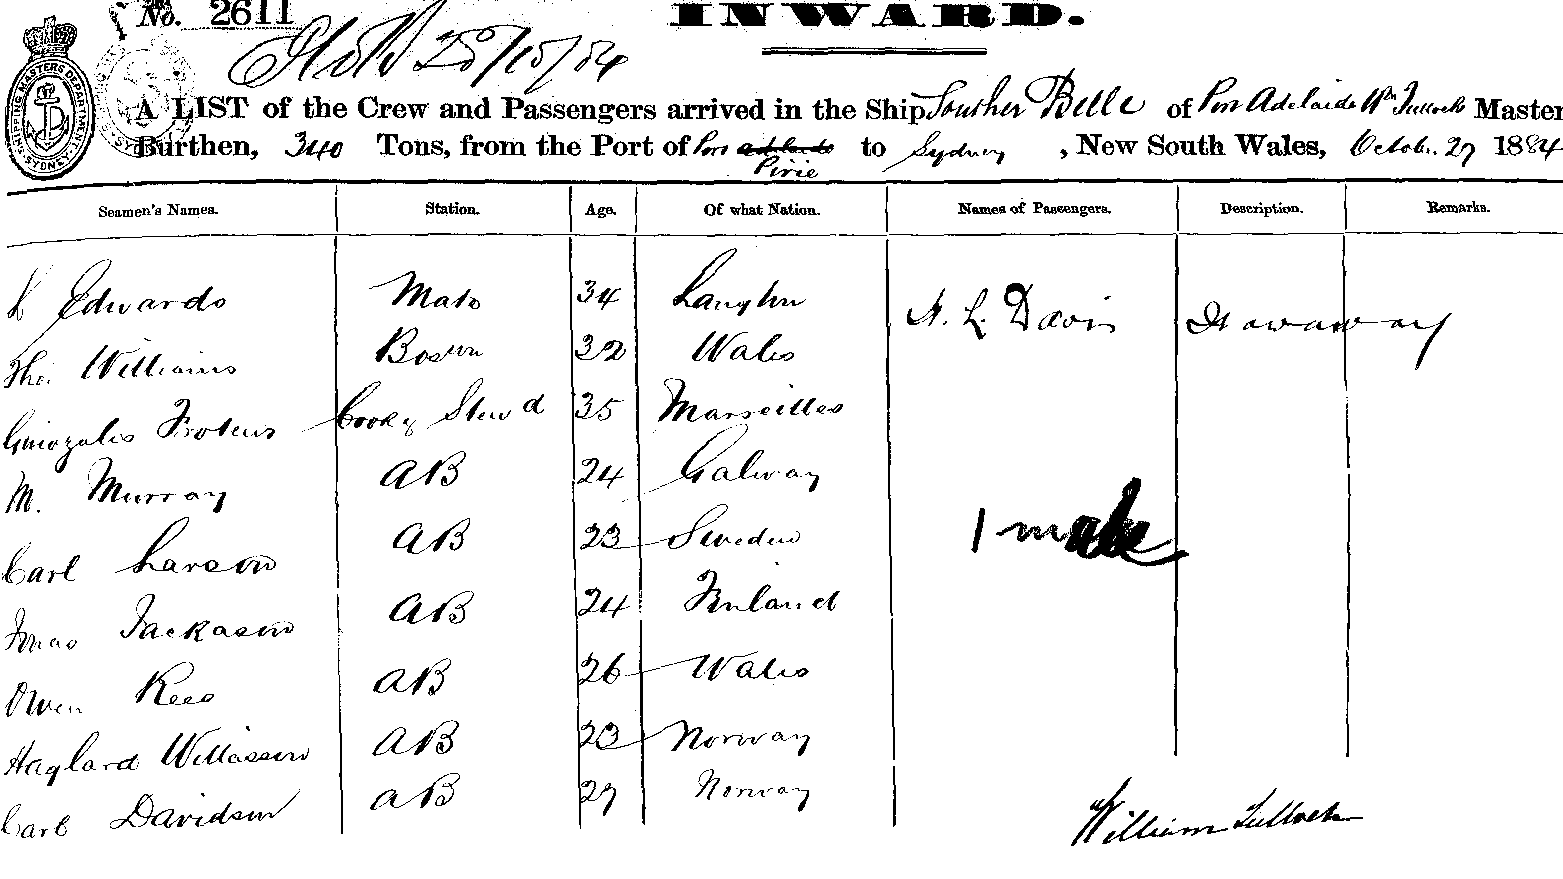 No. 2611
INWARD.
SHIPPING MASTER'S DEPARTMENT SYDNEY
A LIST of the Crew and Passengers arrived in the Ship Souther Belle of Port Adelaide Wm Tulloch Master
Burthen, 340 Tons, from the Port of Port Pirie to Sydney, New South Wales, October 27 1884
Seamen's Names. Station. Age. Of what Nation. Names of Passengers. Description. Remarks.
Edwards Mate 34 A. L. Davis Stowaway
Thos Williams Bosun 32 Wales
Cook & Stewd 35 Marseilles
M. Murray AB 24 Galway
1 male
Carl Larson AB 23 Sweden
Jackason AB 24 Finland
Owen Rees AB 26 Wales
Haglard Willassen AB 23 Norway
Carl Davidson AB 27 Norway
William Tulloch